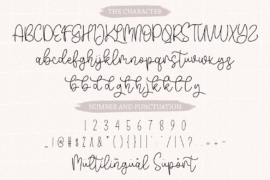 THE CHARACTER
ABCDEFGHIJKLMNOPQRSTUVWXYZ
abcdefghijklmnopqrstuvwxyz
NUMBER AND PUNCTUATION
1 2 3 4 5 6 7 8 9 0
Multilingual Suport